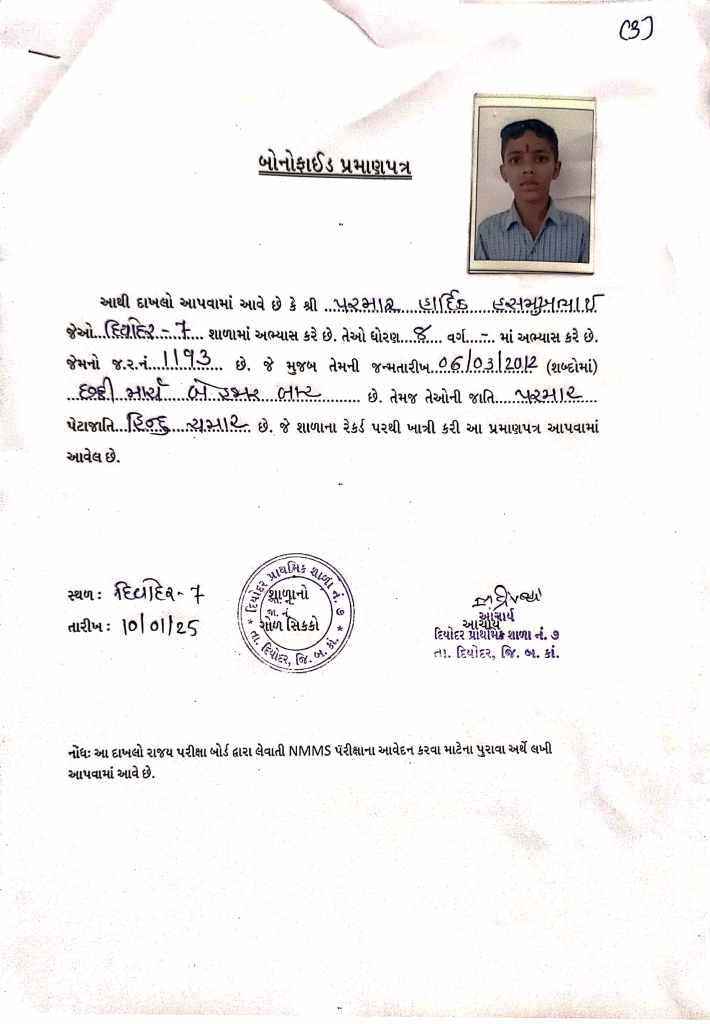 (3)
બોનોફાઈડ પ્રમાણપત્ર
આથી દાખલો આપવામાં આવે છે કે શ્રી ..પરમાર....હાર્દિક....હસમુખભાઈ
જેઓ...દિયોદર - 7.... શાળામાં અભ્યાસ કરે છે. તેઓ ધોરણ...8.... વર્ગ....-.. માં અભ્યાસ કરે છે.
જેમનો જ.ર.નં....1193.... છે. જે મુજબ તેમની જન્મતારીખ..06/03/2012 (શબ્દોમાં)
..છઠ્ઠી..માર્ચ....બે હજાર...બાર........... છે. તેમજ તેઓની જાતિ.....પરમાર....
પેટાજાતિ...હિન્દુ....ચમાર.. છે. જે શાળાના રેકર્ડ પરથી ખાત્રી કરી આ પ્રમાણપત્ર આપવામાં
આવેલ છે.
સ્થળ : દિયોદર - 7
તારીખ : 10/01/25
દિયોદર પ્રાથમિક શાળા નં. ૭
તા. દિયોદર, જિ. બ. કાં.
શાળાનો
જા. નં.
ગોળ સિક્કો
આચાર્ય
આચાર્ય
દિયોદર પ્રાથમિક શાળા નં. ૭
તા. દિયોદર, જિ. બ. કાં.
નોંધ: આ દાખલો રાજ્ય પરીક્ષા બોર્ડ દ્વારા લેવાતી NMMS પરીક્ષાના આવેદન કરવા માટેના પુરાવા અર્થે લખી
આપવામાં આવે છે.